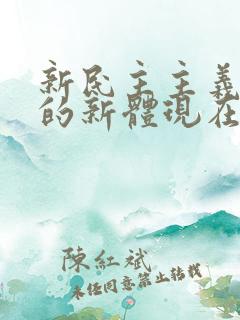 新民主主義
的新體現在
陳紅斌
未经同意禁止转载